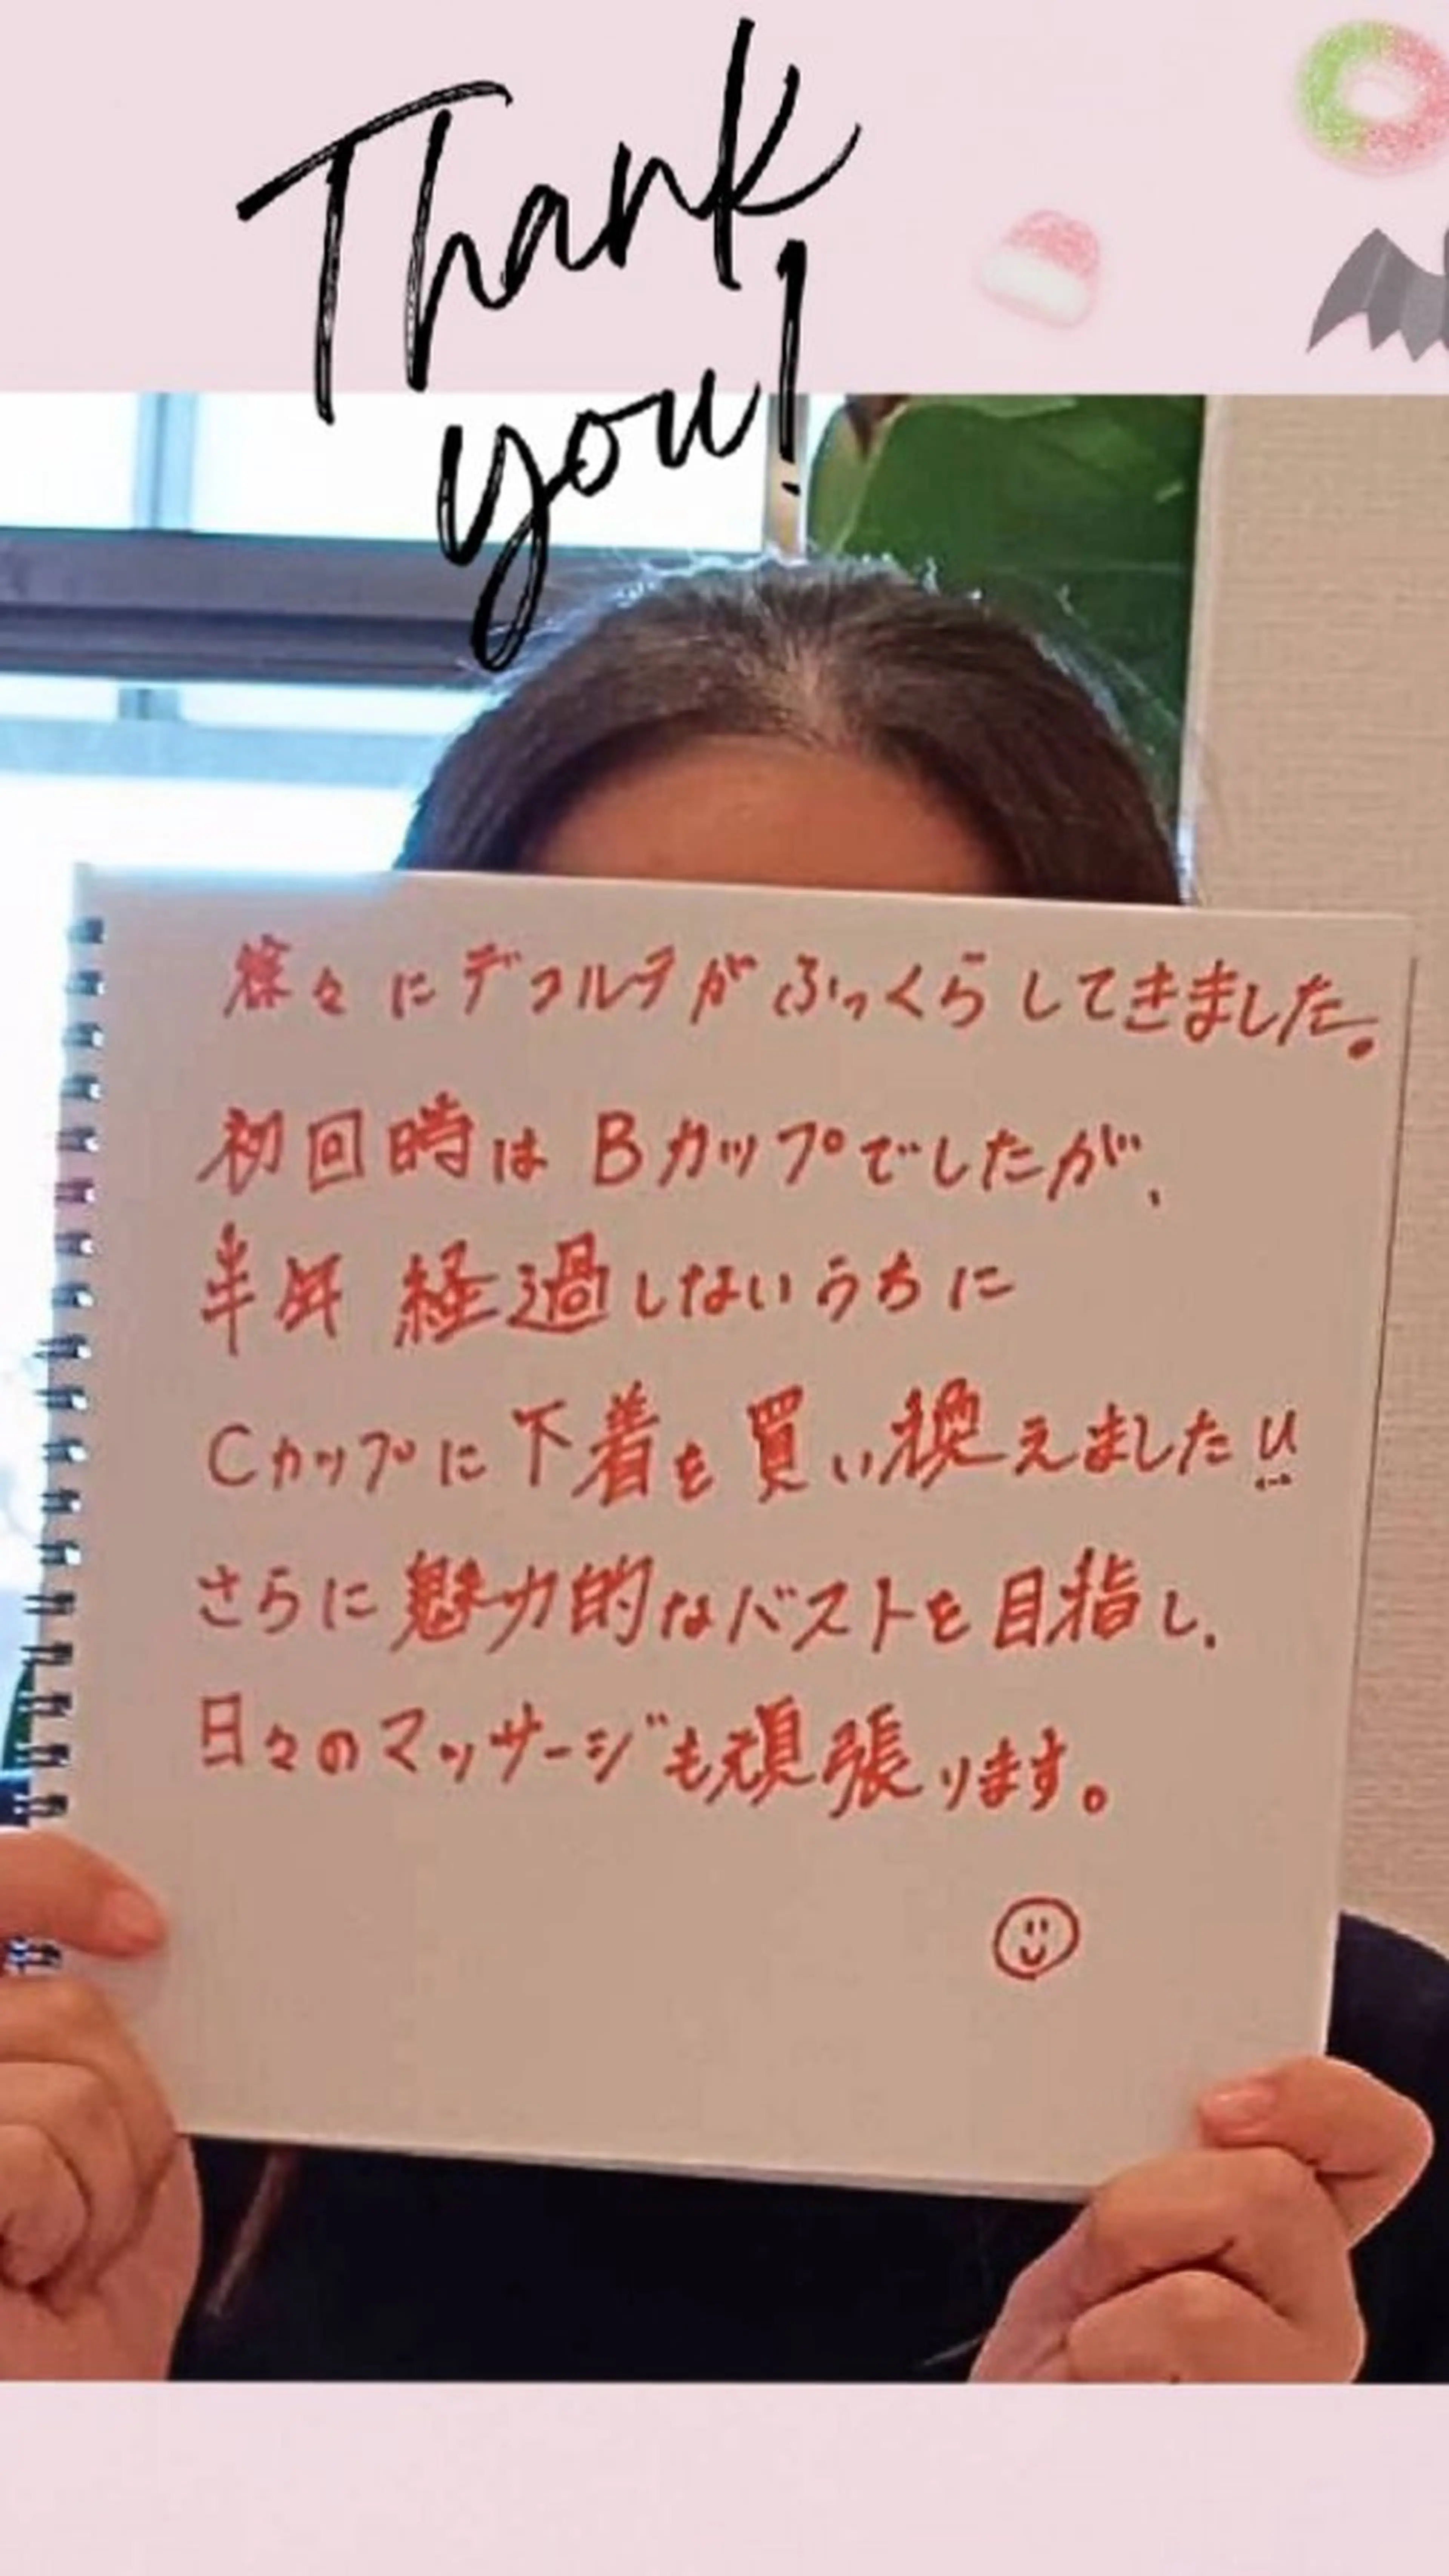 Thank
you!
徐々にデコルテがふっくらしてきました。
初回時はBカップでしたが、
半年経過しないうちに
Cカップに下着を買い換えました!!
さらに魅力的なバストを目指し、
日々のマッサージも頑張ります。